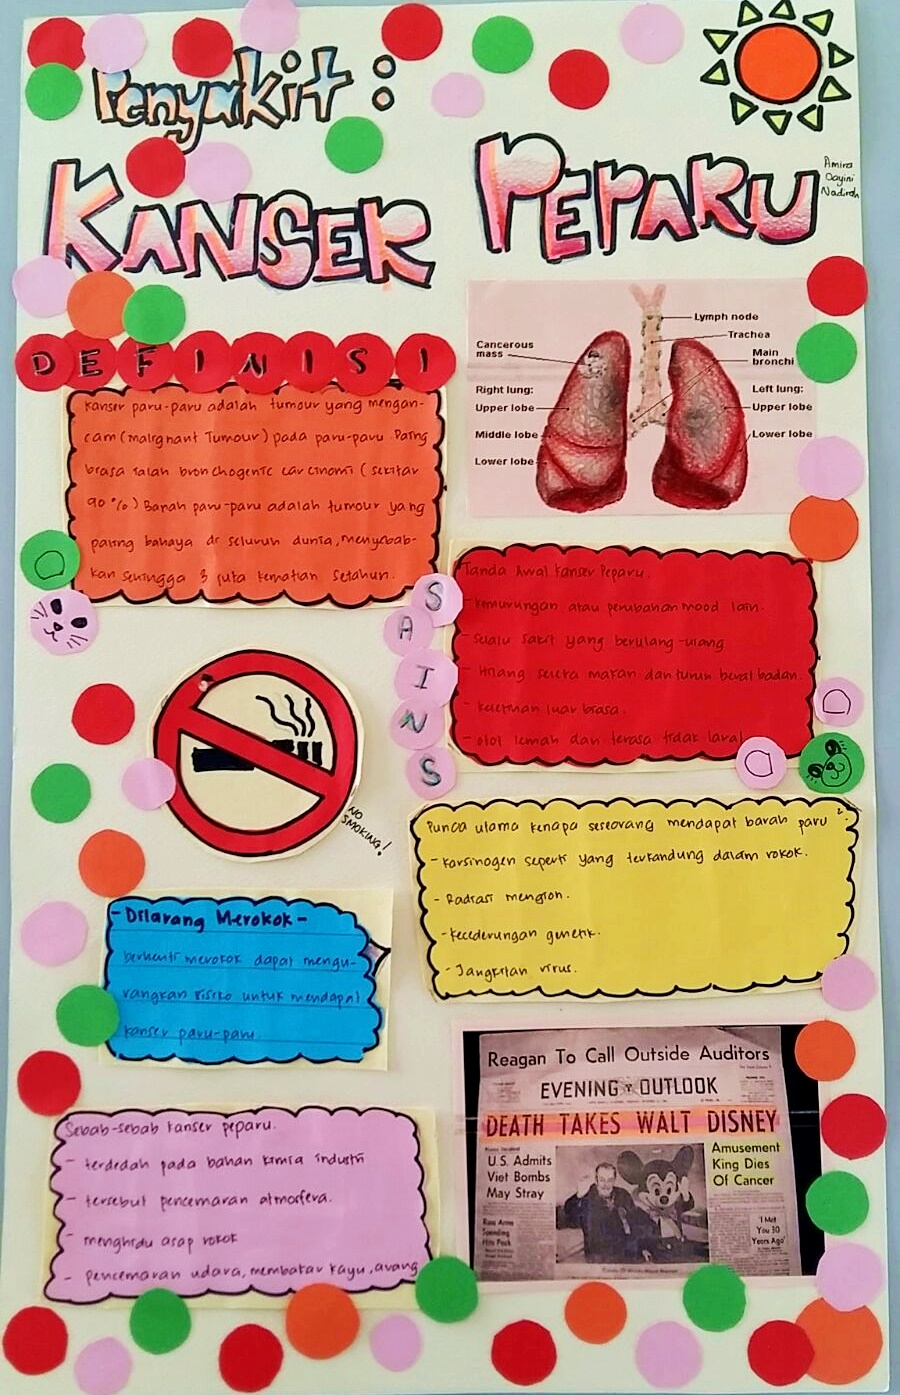 Penyakit :
KANSER PEPARU
Amira
Dayini
Nadirah
DEFINISI
Kanser paru-paru adalah tumour yang mengan-
cam (malignant Tumour) pada paru-paru. Paling
brasa ialah bronchogenic carcinomi (sekitar
90 %) Barah paru-paru adalah tumour yang
paling bahaya di seluruh dunia, menyebab-
kan sehingga 3 juta kematian setahun.
Lymph node
Trachea
Main
bronchi
Cancerous
mass
Right lung:
Upper lobe
Middle lobe
Lower lobe
Left lung:
Upper lobe
Lower lobe
SAINS
Tanda Awal Kanser Peparu.
- Kemurungan atau perubahan mood lain.
- Selalu sakit yang berulang-ulang
- Hilang selera makan dan turun berat badan.
- Keletihan luar biasa.
- otot lemah dan terasa tidak larat
NO
SMOKING!
Punca utama kenapa seseorang mendapat barah paru².
- Karsinogen seperti yang terkandung dalam rokok.
- Radiasi mengion.
- Kecederungan genetik.
- Jangkitan virus.
- Dilarang Merokok -
berhenti merokok dapat mengu-
rangkan risiko untuk mendapat
kanser paru-paru.
Sebab-sebab kanser peparu.
- terdedah pada bahan kimia industri
- tersebut pencemaran atmosfera.
- menghidu asap rokok
- pencemaran udara, membakar kayu, arang
Reagan To Call Outside Auditors
EVENING OUTLOOK
DEATH TAKES WALT DISNEY
U.S. Admits
Viet Bombs
May Stray
Amusement
King Dies
Of Cancer
Russ Arms
Spending
Hits Peck
'I Met
You 30
Years Ago'